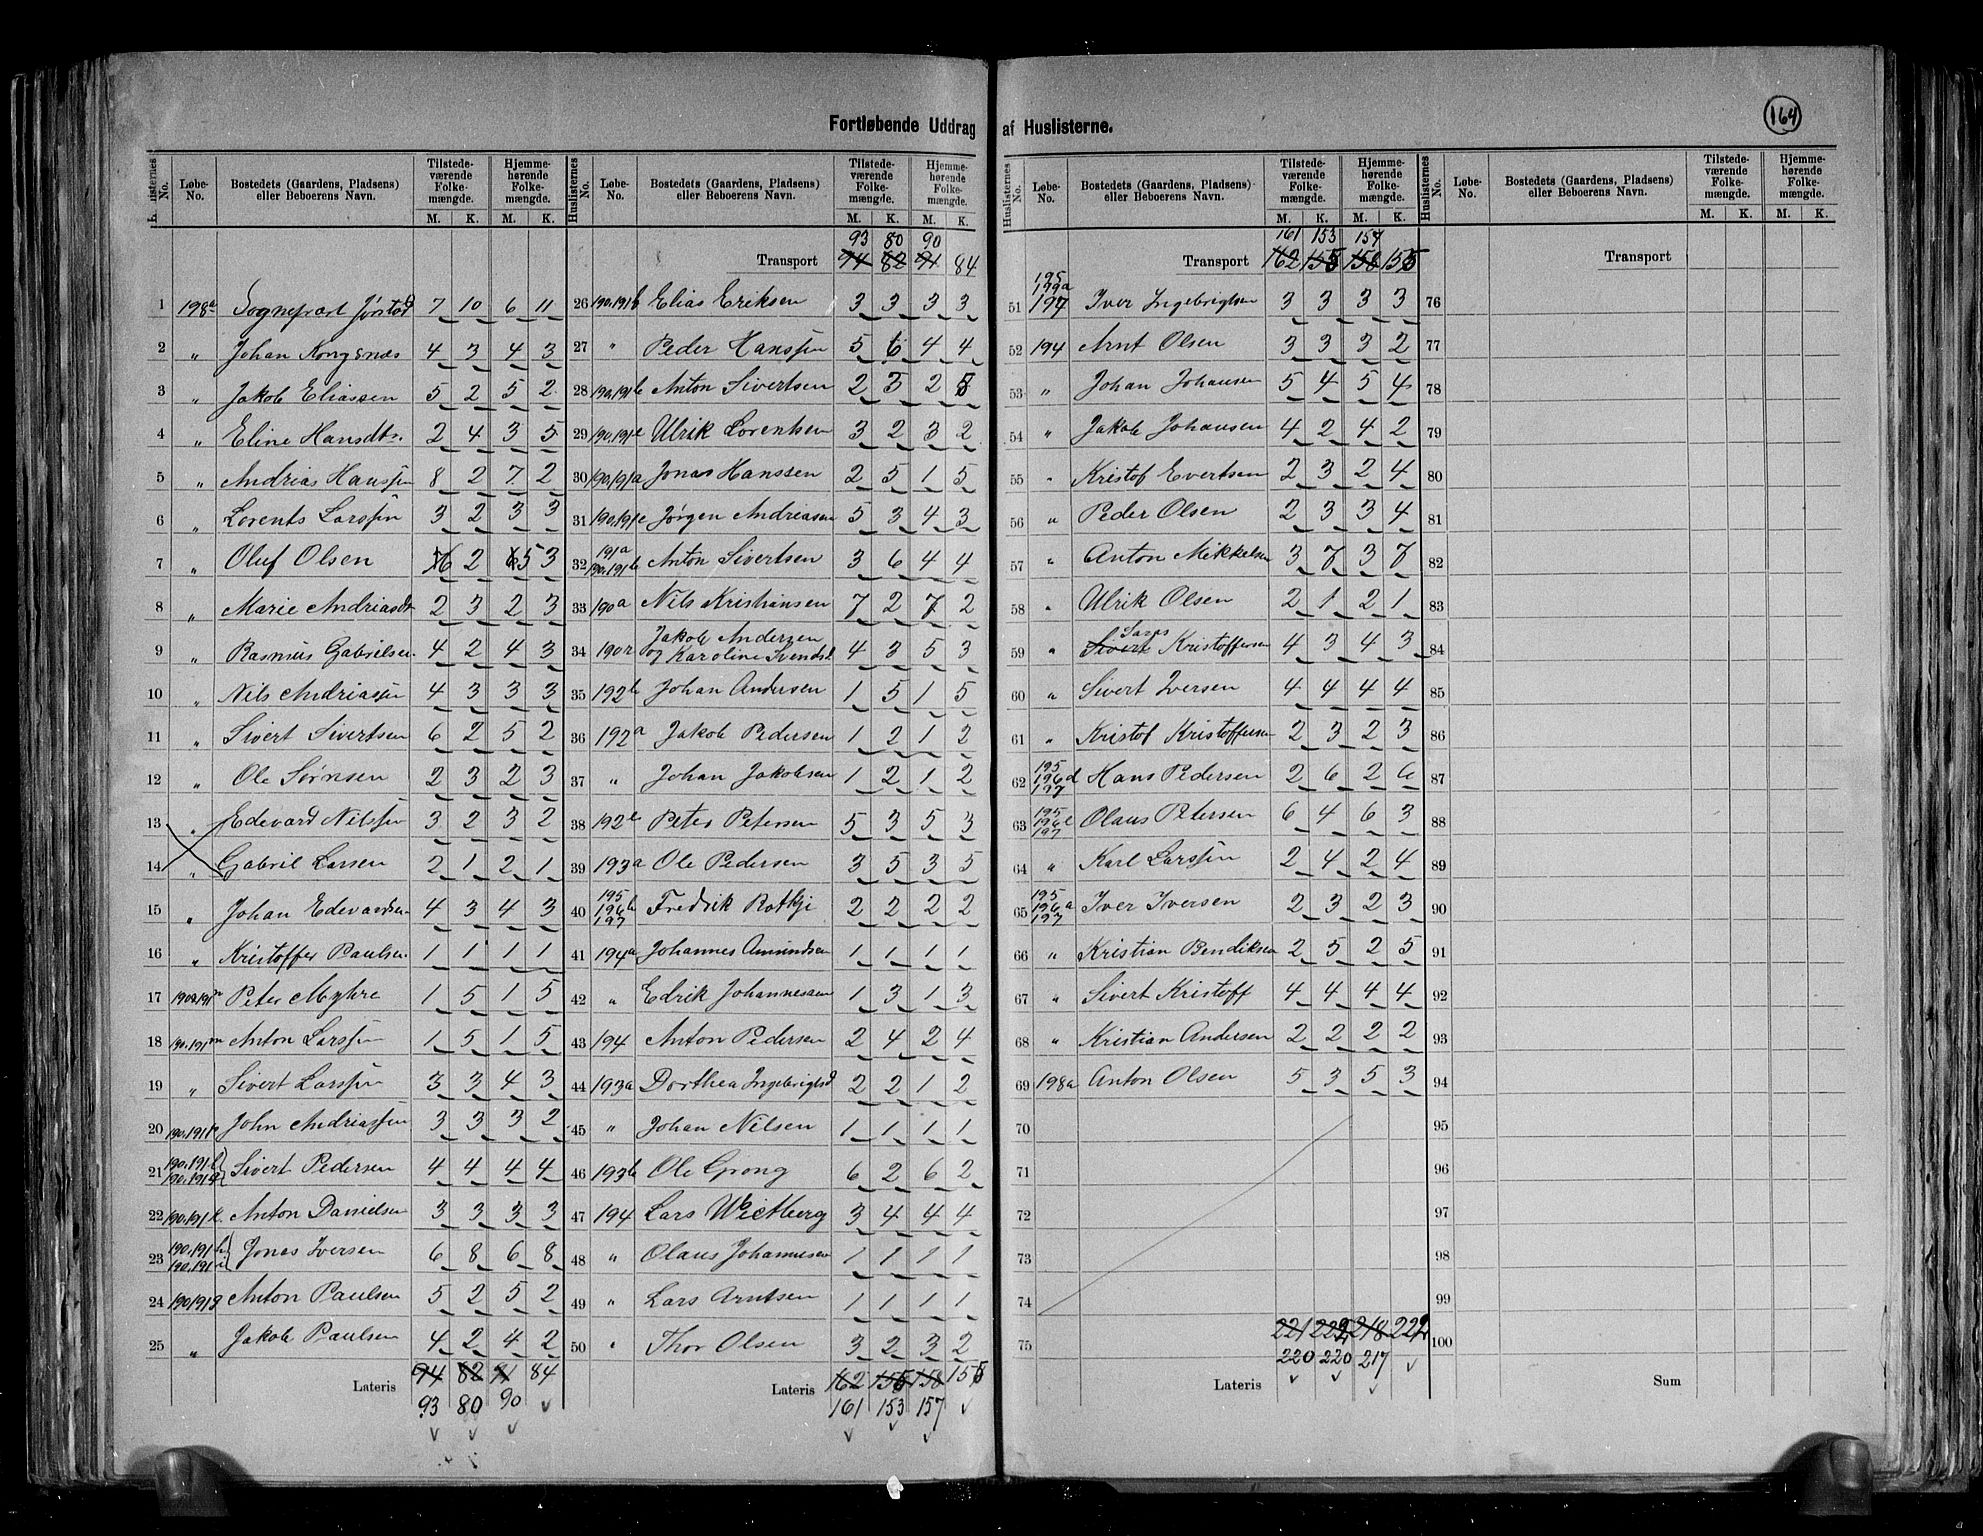 164
Fortløbende Uddrag af Huslisterne.
Huslisternes No. | Løbe-No. | Bostedets (Gaardens, Pladsens) eller Beboerens Navn. | Tilstedeværende Folkemængde. M. K. | Hjemmehørende Folkemængde. M. K.
1 198a Sognepræst Jørstad 7 10 6 11
2 " Johan Kongsnæs 4 3 4 3
3 " Jakob Eliassen 5 2 5 2
4 " Eline Hansdtr. 2 4 3 5
5 " Andrias Hanssen 8 2 7 2
6 " Lorents Larssen 3 2 3 3
7 " Oluf Olsen 6 2 5 3
8 " Marie Andriasdt 2 3 2 3
9 " Rasmus Gabrielsen 4 2 4 3
10 " Nils Andriassen 4 3 3 3
11 " Sivert Sivertsen 6 2 5 2
12 " Ole Sørnsen 2 3 2 3
13 " Edevard Nilssen 3 2 3 2
14 " Gabriel Larsen 2 1 2 1
15 " Johan Edevardsen 4 3 4 3
16 " Kristoffer Paulsen 1 1 1 1
17 Peter Myhre 1 5 1 5
18 190.191m Anton Larssen 1 5 1 5
19 " Sivert Larssen 3 3 4 3
20 John Andriassen 3 3 3 2
21 Sivert Pedersen 4 4 4 4
22 Anton Danielsen 3 3 3 3
23 Jonas Iversen 6 8 6 8
24 190.191g Anton Paulsen 5 2 5 2
25 " Jakob Paulsen 4 2 4 2
94 82 91 84
Lateris
93 80 90
93 80 90
Transport 94 82 91 84
26 190.191b Elias Eriksen 3 3 3 3
27 " Peder Hanssen 5 6 4 4
28 190.191b Anton Sivertsen 2 3 2
29 Ulrik Lorentsen 3 2 3 2
30 190.191a Jonas Hanssen 2 5 1 5
31 190.191c Jørgen Andreasen 5 3 4 3
32 191a 190.191b Anton Sivertsen 3 6 4 4
33 190a Nils Kristiansen 7 2 7 2
34 Jakob Andersen og Karoline Svendsd. 4 3 5 3
35 192b Johan Andersen 1 5 1 5
36 192a Jakob Pedersen 1 2 1 2
37 " Johan Jakobsen 1 2 1 2
38 Peter Petersen 5 3 5 3
39 193a Ole Pedersen 3 5 3 5
40 195 196b 197 Fredrik 2 2 2 2
41 194a Johannes Amundsen 1 1 1 1
42 " Edrik Johannesen 1 3 1 3
43 194 Anton Pedersen 2 4 2 4
44 193a Dorthea Ingebrigtsd 2 2 1 2
45 " Johan Nilsen 1 1 1 1
46 193b Ole Grong 6 2 6 2
47 194 Lars Wictberg 3 4 4 4
48 " Olaus Johannesen 1 1 1 1
49 " Lars Arntsen 1 1 1 1
50 " Thor Olsen 3 2 3 2
Lateris 162 155 158 155
161 153 157
161 153 157
Transport 162 155 158 155
51 195 199a 197 Iver Ingebrigtsen 3 3 3 3
52 194 Arnt Olsen 3 3 3 2
53 " Johan Johansen 5 4 5 4
54 " Jakob Johansen 4 2 4 2
55 " Kristof Evertsen 2 3 2 4
56 " Peder Olsen 2 3 3 4
57 " Anton Mikkelsen 3 7 3 7
58 " Ulrik Olsen 2 1 2 1
59 " Sivert Lars Kristoffersen 4 3 4 3
60 " Sivert Iversen 4 4 4 4
61 " Kristof Kristoffersen 2 3 2 3
62 195 196d 197 Hans Pedersen 2 6 2 6
63 195 196c 197 Olaus Petersen 6 4 6 3
64 " Karl Larssen 2 4 2 4
65 195 196a 197 Iver Iversen 2 3 2 3
66 " Kristian Bendiksen 2 5 2 5
67 " Sivert Kristoff 4 4 4 4
68 " Kristian Andersen 2 2 2 2
69 198a Anton Olsen 5 3 5 3
70
71
72
73
74
75
221 222 218 222
220 220 217
Lateris
Transport
76
77
78
79
80
81
82
83
84
85
86
87
88
89
90
91
92
93
94
95
96
97
98
99
100
Sum